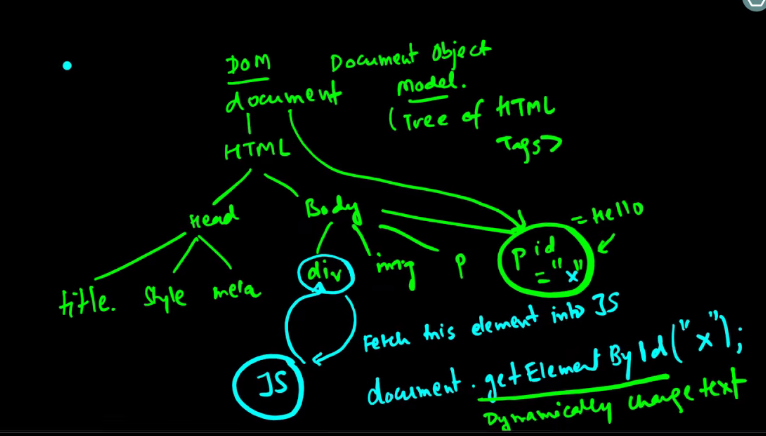 DOM Document Object
document Model.
(Tree of HTML
Tags>
HTML
Head
Body
= Hello
title. Style meta
div img p
p id
= "x"
Fetch this element into JS
JS
document . getElementById("x");
Dynamically change text